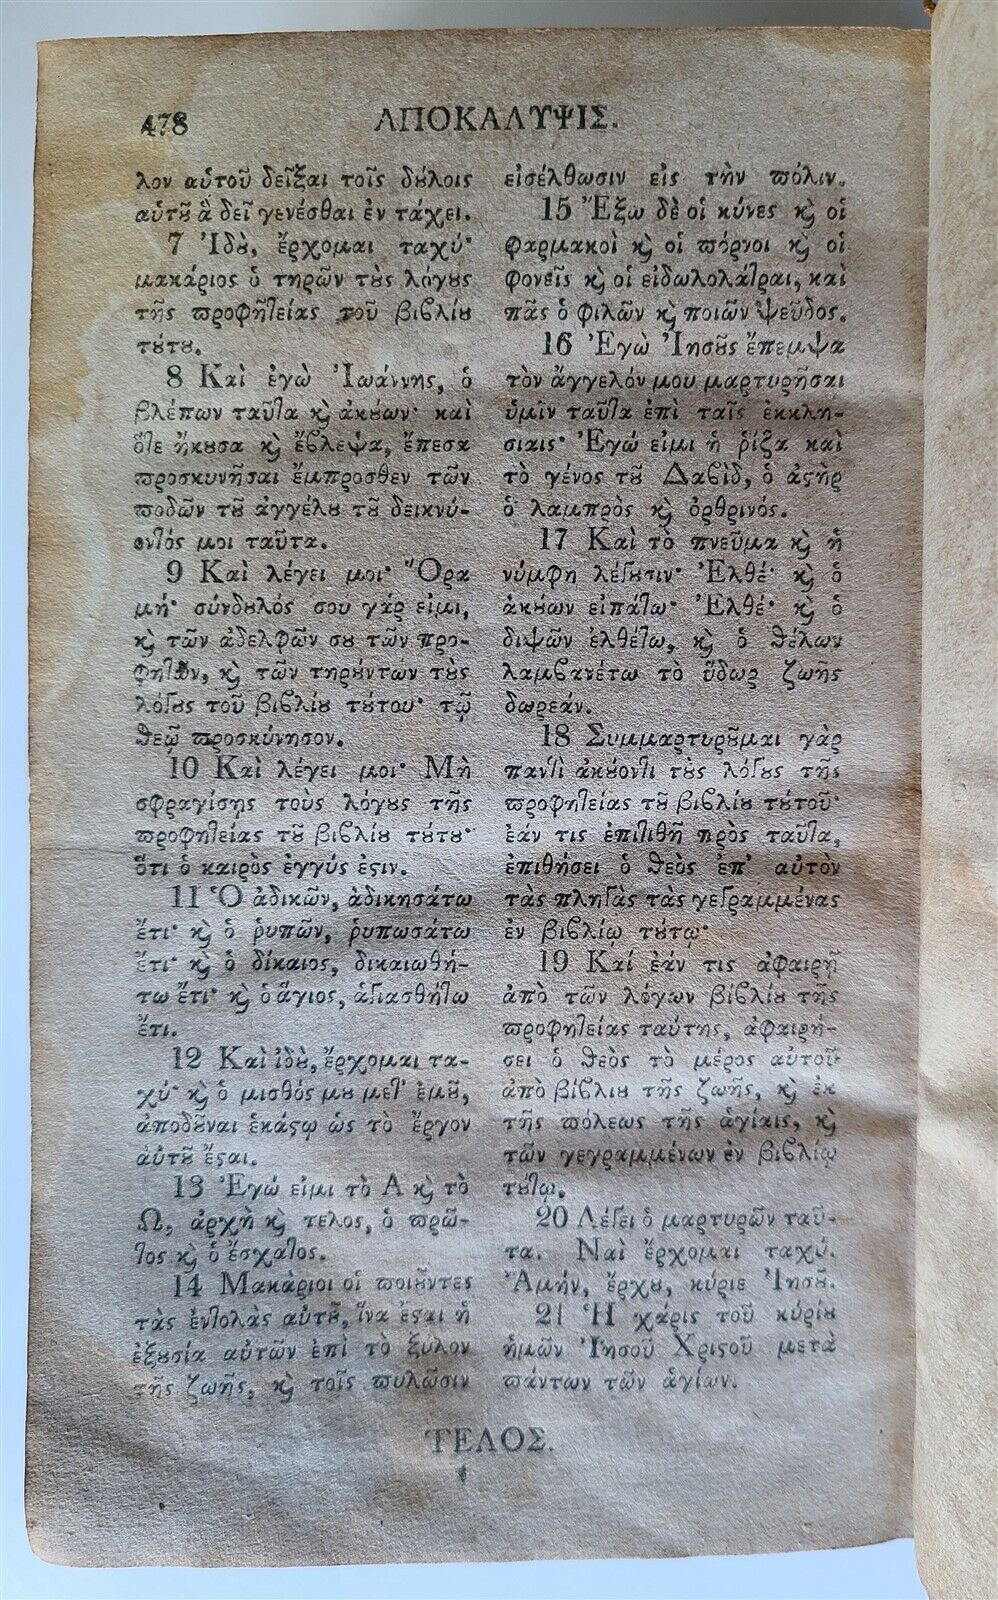 478
ΑΠΟΚΑΛΥΨΙΣ.
λον αὑτοῦ δεῖξαι τοῖς δȣ́λοις
αὑτȣ͂ ἃ δεῖ γενέσθαι ἐν τάχει.
7 Ἰδȣ̀, ἔρχομαι ταχύ·
μακάριος ὁ τηρῶν τȣ̀ς λόγȣς
τῆς ϖροφητείας τοῦ βιϐλίȣ
τȣ́τȣ.
8 Καὶ ἐγὼ Ἰωάννης, ὁ
βλέπων ταῦτα ϗ̀ ἀκȣ́ων· καὶ
ὅτε ἤκȣσα ϗ̀ ἔϐλεψα, ἔπεσα
ϖροσκυνῆσαι ἔμπροσθεν τῶν
ϖοδῶν τȣ͂ ἀγγέλȣ τȣ͂ δεικνύ-
οντός μοι ταῦτα.
9 Καὶ λέγει μοι· Ὅρα
μή· σύνδȣλός σου γάρ εἰμι,
ϗ̀ τῶν ἀδελφῶν σȣ τῶν προ-
φητῶν, ϗ̀ τῶν τηρȣ́ντων τȣ̀ς
λόγȣς τοῦ βιϐλίȣ τȣ́του· τῷ
ϑεῷ ϖροσκύνησον.
10 Καὶ λέγει μοι· Μὴ
σφραγίσῃς τοὺς λόγȣς τῆς
ϖροφητείας τȣ͂ βιϐλίȣ τȣ́τȣ·
ὅτι ὁ καιρὸς ἐγγύς ἐϛιν.
11 Ὁ ἀδικῶν, ἀδικησάτω
ἔτι· ϗ̀ ὁ ῥυπῶν, ῥυπωσάτω
ἔτι· ϗ̀ ὁ δίκαιος, δικαιωθή-
τω ἔτι· ϗ̀ ὁ ἅγιος, ἁγιασθήτω
ἔτι.
12 Καὶ ἰδȣ̀, ἔρχομαι τα-
χύ· ϗ̀ ὁ μισθός μȣ μετ' ἐμȣ͂,
ἀποδȣ͂ναι ἑκάϛῳ ὡς τὸ ἔργον
αὑτȣ͂ ἔϛαι.
13 Ἐγώ εἰμι τὸ Α ϗ̀ τὸ
Ω, ἀρχὴ ϗ̀ τελος, ὁ ϖρῶ-
τος ϗ̀ ὁ ἔσχατος.
14 Μακάριοι οἱ ϖοιȣ͂ντες
τὰς ἐντολὰς αὐτȣ͂, ἵνα ἔϛαι ἡ
ἐξȣσία αὐτῶν ἐπὶ τὸ ξύλον
τῆς ζωῆς, ϗ̀ τοῖς ϖυλῶσιν
εἰσέλθωσιν εἰς τὴν ϖόλιν.
15 Ἔξω δὲ οἱ κύνες ϗ̀ οἱ
φαρμακοὶ ϗ̀ οἱ ϖόρνοι ϗ̀ οἱ
φονεῖς ϗ̀ οἱ εἰδωλολάτραι, καὶ
πᾶς ὁ φιλῶν ϗ̀ ποιῶν ψεῦδος.
16 Ἐγὼ Ἰησȣ͂ς ἔπεμψα
τὸν ἄγγελόν μου μαρτυρῆσαι
ὑμῖν ταῦτα ἐπὶ ταῖς ἐκκλη-
σίαις· Ἐγώ εἰμι ἡ ῥίζα καὶ
τὸ γένος τȣ͂ Δαϐὶδ, ὁ ἀϛὴρ
ὁ λαμπρὸς ϗ̀ ὀρθρινός.
17 Καὶ τὸ πνεῦμα ϗ̀ ἡ
νύμφη λέγȣσιν· Ἐλθέ· ϗ̀ ὁ
ἀκȣ́ων εἰπάτω· Ἐλθέ· ϗ̀ ὁ
διψῶν ἐλθέτω, ϗ̀ ὁ ϑέλων
λαμϐανέτω τὸ ὕδωρ ζωῆς
δωρεάν.
18 Συμμαρτυρȣ͂μαι γὰρ
παντὶ ἀκȣ́οντι τȣ̀ς λόγȣς τῆς
ϖροφητείας τȣ͂ βιϐλίȣ τȣ́τοῦ·
ἐάν τις ἐπιτιθῇ πρὸς ταῦτα,
ἐπιθήσει ὁ ϑεὸς ἐπ' αὐτὸν
τὰς πληγὰς τὰς γεγραμμένας
ἐν βιϐλίῳ τȣ́τῳ·
19 Καί ἐάν τις ἀφαιρῇ
ἀπὸ τῶν λόγων βιϐλίȣ τῆς
ϖροφητείας ταύτης, ἀφαιρή-
σει ὁ ϑεὸς τὸ μέρος αὐτοῦ
ἀπὸ βίϐλȣ τῆς ζωῆς, ϗ̀ ἐκ
τῆς ϖόλεως τῆς ἁγίας, ϗ̀
τῶν γεγραμμένων ἐν βιϐλίῳ
τȣ́τῳ.
20 Λέγει ὁ μαρτυρῶν ταῦ-
τα. Ναὶ ἔρχομαι ταχύ.
Ἀμήν, ἔρχȣ, κύριε Ἰησȣ͂.
21 Ἡ χάρις τοῦ κύρίȣ
ἡμῶν Ἰησοῦ Χριςοῦ μετὰ
ϖάντων τῶν ἁγίων.
ΤΕΛΟΣ.